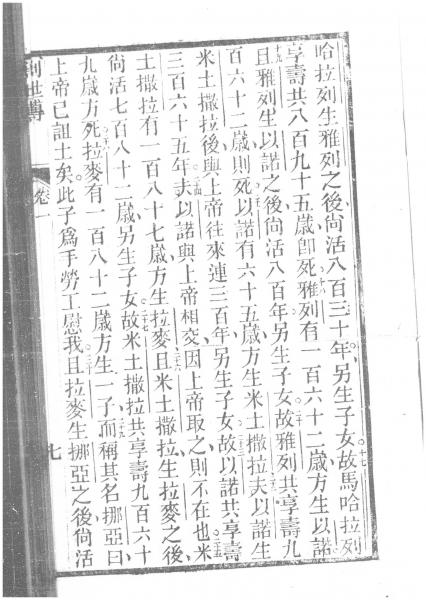 哈拉列生雅列之後、尚活八百三十年、另生子女。故馬哈拉列
享壽共八百九十五歲、卽死。雅列有一百六十二歲、方生以諾
且雅列生以諾之後、尚活八百年、另生子女。故雅列共享壽九
百六十二歲、則死。以諾有六十五歲、方生米土撒拉。夫以諾生
米土撒拉後、與上帝往來連三百年、另生子女。故以諾共享壽
三百六十五年。夫以諾與上帝相交、因上帝取之、則不在也。米
土撒拉有一百八十七歲、方生拉麥。且米土撒拉生拉麥之後、
尚活七百八十二歲、另生子女。故米土撒拉共享壽九百六十
九歲、方死。拉麥有一百八十二歲、方生一子、而稱其名挪亞、曰
上帝已詛土矣、此子爲手勞工慰我。且拉麥生挪亞之後、尚活
創世傳 卷一 七